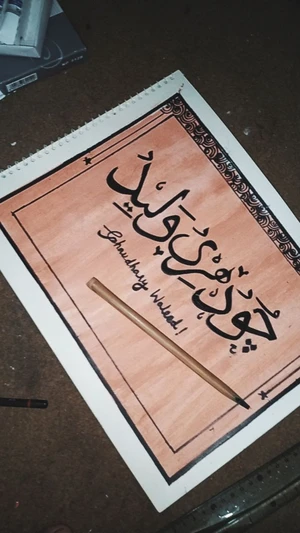 چودھری ولید
Chaudhary Waleed!